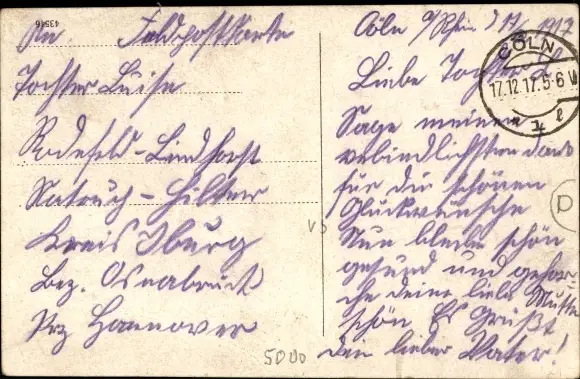 43546
An. Feldpostkarte
Tochter Luise
Rodefeld-Lindhorst
Natrup-Hilter
Kreis Iburg
Bez. Osnabrück
Prz Hannover
5000
Cöln a/Rhein d 17/ 1917
CÖLN
17.12.17. 5-6 N
Liebe Tochter
Sage meinen
verbindlichsten dank
für die schönen
Glückwünsche
Nun bleibe schön
gesund und gehor-
che deine liebe Mutter
schön. Es Grüßt
dein lieber Vater!
D